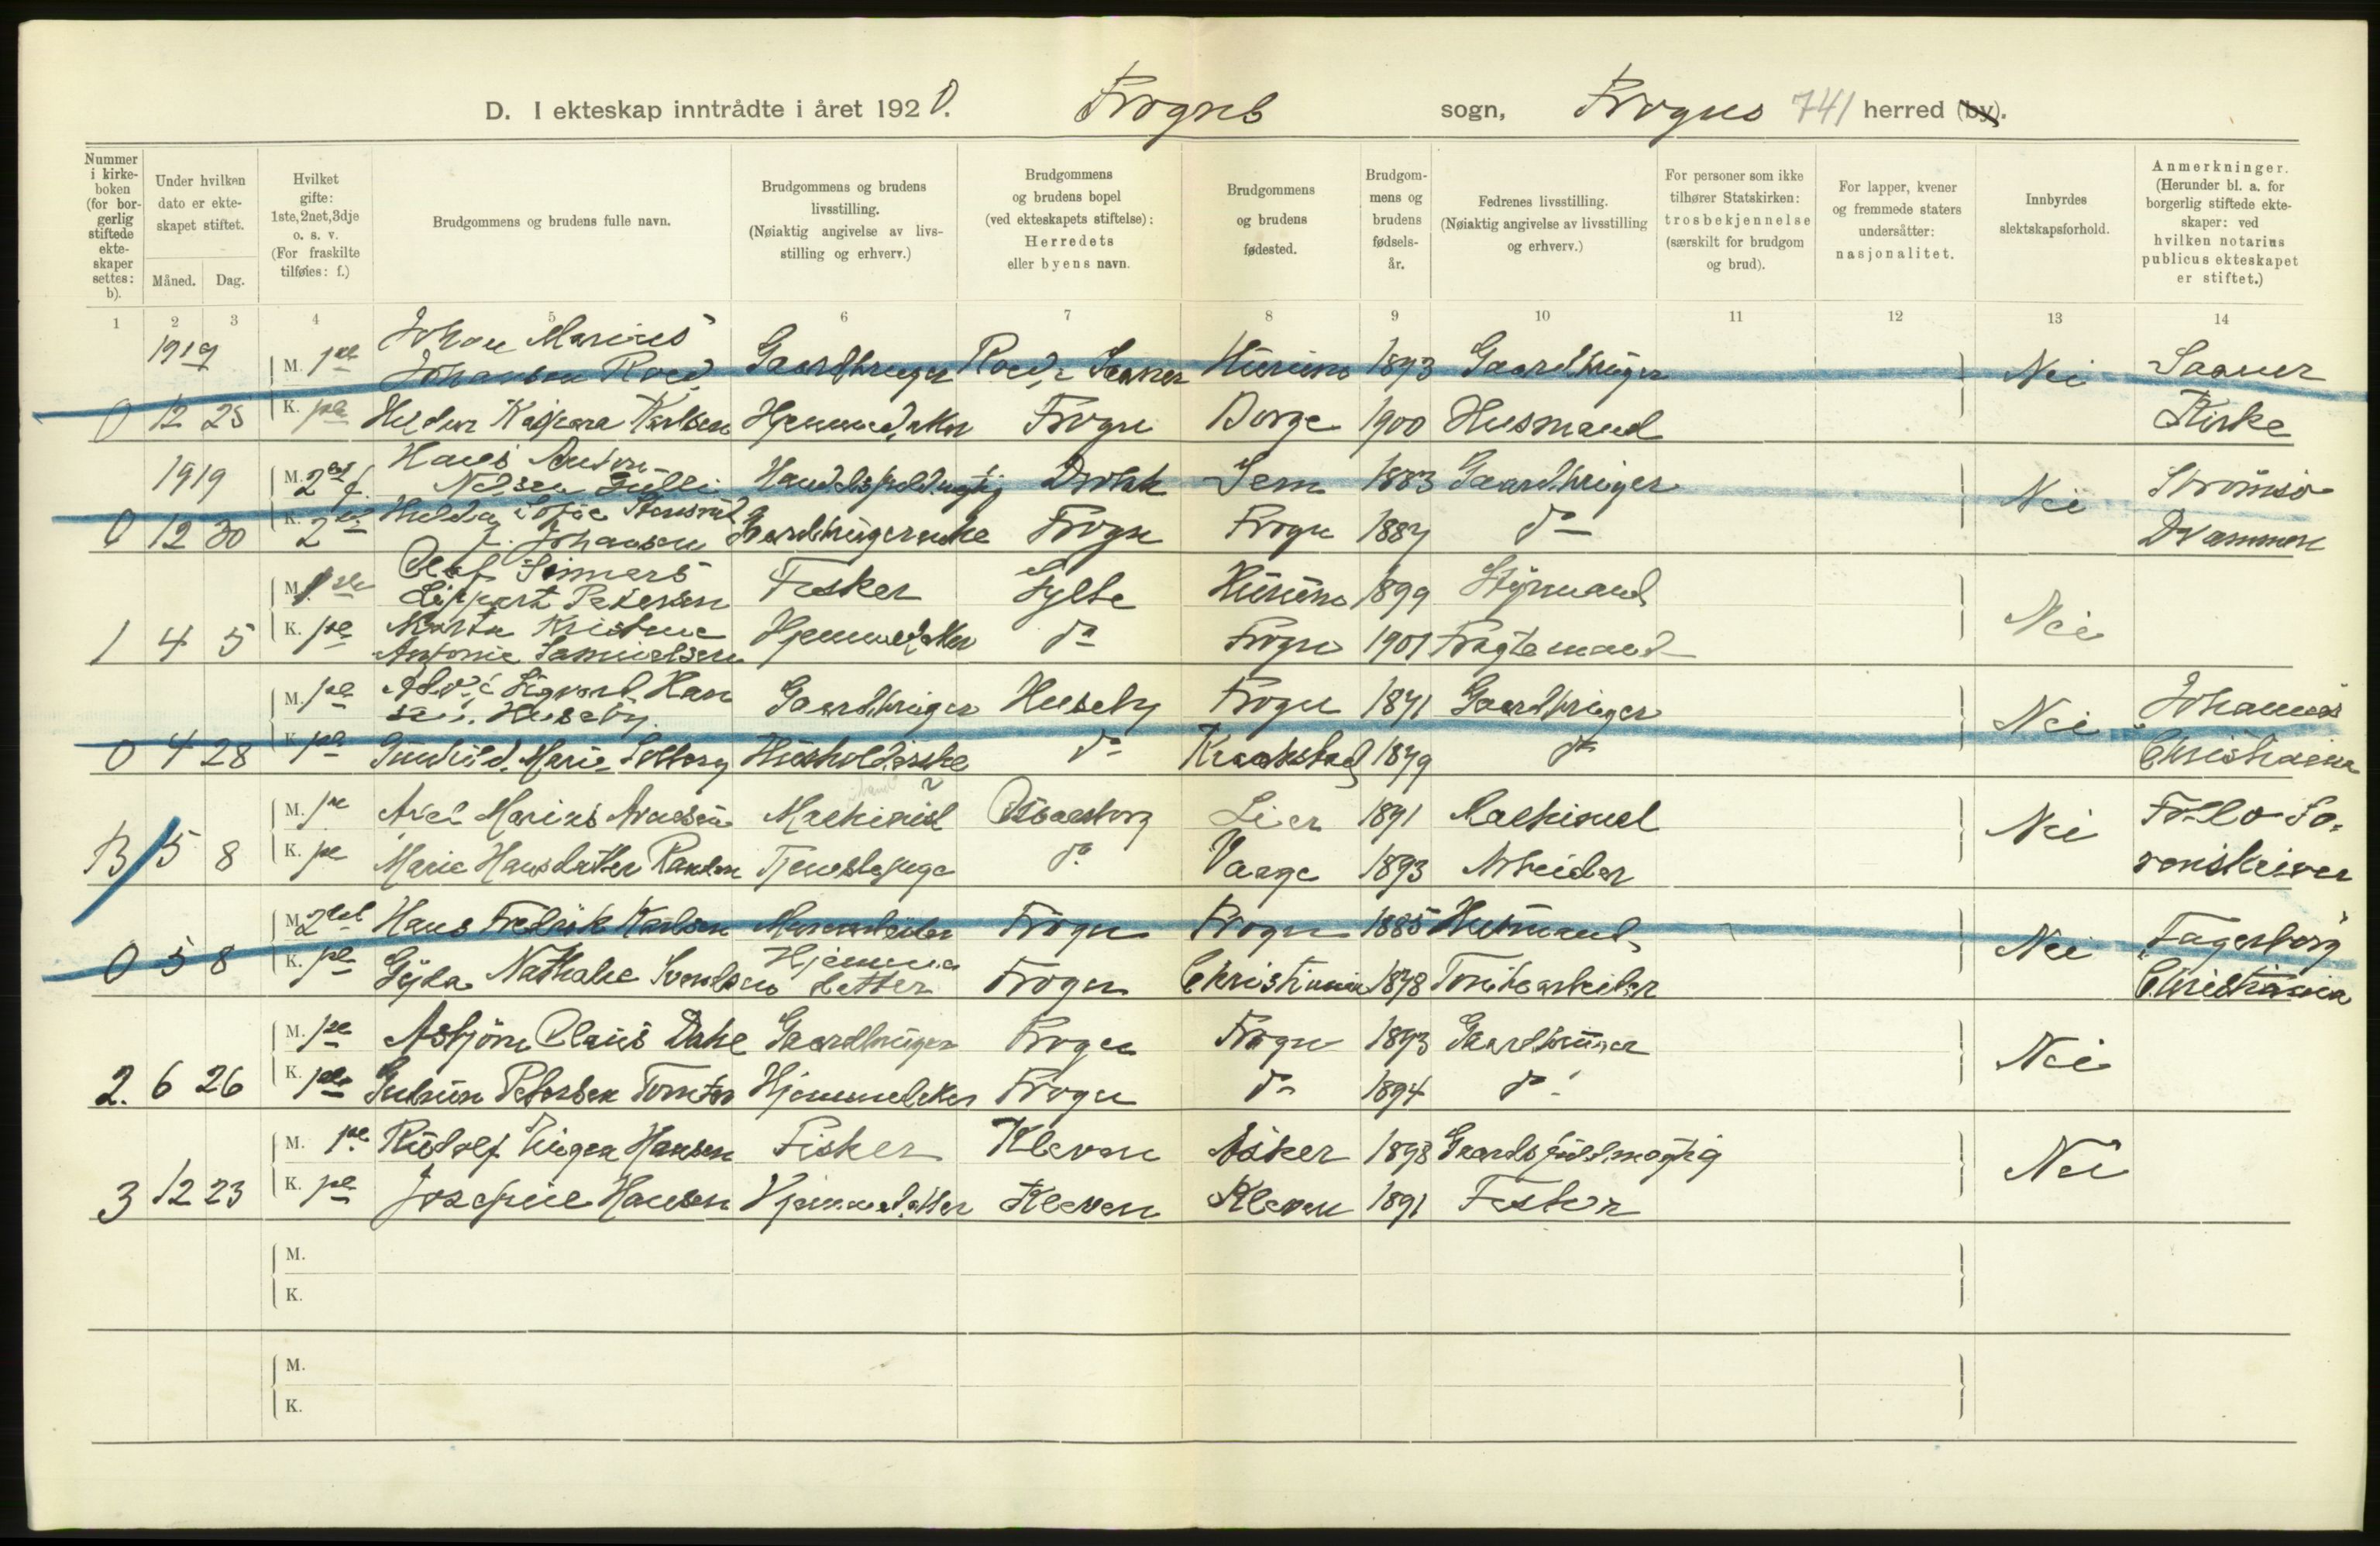 D. I ekteskap inntrådte i året 1920. Frogns sogn, Frogns 741 herred (by).
Nummer i kirkeboken (for borgerlig stiftede ekteskaper settes: b).
Under hvilken dato er ekteskapet stiftet.
Måned. Dag.
Hvilket gifte: 1ste, 2net, 3dje o. s. v. (For fraskilte tilføies: f.)
Brudgommens og brudens fulle navn.
Brudgommens og brudens livsstilling. (Nøiaktig angivelse av livsstilling og erhverv.)
Brudgommens og brudens bopel (ved ekteskapets stiftelse): Herredets eller byens navn.
Brudgommens og brudens fødested.
Brudgommens og brudens fødselsår.
Fedrenes livsstilling. (Nøiaktig angivelse av livsstilling og erhverv.)
For personer som ikke tilhører Statskirken: trosbekjennelse (særskilt for brudgom og brud).
For lapper, kvener og fremmede staters undersåtter: nasjonalitet.
Innbyrdes slektskapsforhold.
Anmerkninger. (Herunder bl. a. for borgerlig stiftede ekteskaper: ved hvilken notarius publicus ekteskapet er stiftet.)
1 2 3 4 5 6 7 8 9 10 11 12 13 14
1919 M. Johan Marius
Johansen Roed Gaardbruger Roed, Saaner Hurum 1893 Gaardbruger Nei Saaner
0 12 25 K. Kaspara Karlsen Frogn Borge 1900 Husmand Kirke
1919 M. 2et f. Hans Anton
Nilsen Gulli Sem 1883 Gaardbruger Nei Strømsø
0 12 30 K. 2et Hulda Sofie
f. Johansen Gaardbrugerenke Frogn Frogn 1887 do Drammen
M. 1ste Olaf
Lippert Petersen Fisker Hurum 1899 Styrmand Nei
1 4 5 K. Marta Kristine
Antonie Samuelsen do Frogn 1901 Fragtemand
M. Sigvard Han
sen Huseby Gaardbruger Huseby Frogn 1871 Gaardbruger Nei Johannes
0 4 28 K. Gunhild Marie Solberg Husholderske do Kraakstad 1879 do Christiania
M. Axel Marius Arnesen Maskinist Lier 1891 Nei Follo So-
B 5 8 K. Marie Hansdatter Tjenestepige do Vaage 1893 Arbeider renskriver
M. 2det Hans Fredrik Karlsen Frogn Frogn 1885 Husmand Nei Fagerborg
0 5 8 K. Nathalie Svendsen Hjemme
datter Frogn Christiania 1878 Christiania
M. Asbjörn Claus Dahl Gaardbruger Frogn Frogn 1893 Gaardbruger Nei
2. 6 26 K. Gudrun Petersen Tomter Frogn do 1894 do
M. Rudolf Hansen Fisker Kleven Asker 1898 Nei
3 12 23 K. Josefine Hansen Kleven Kleven 1891 Fisker
M.
K.
M.
K.